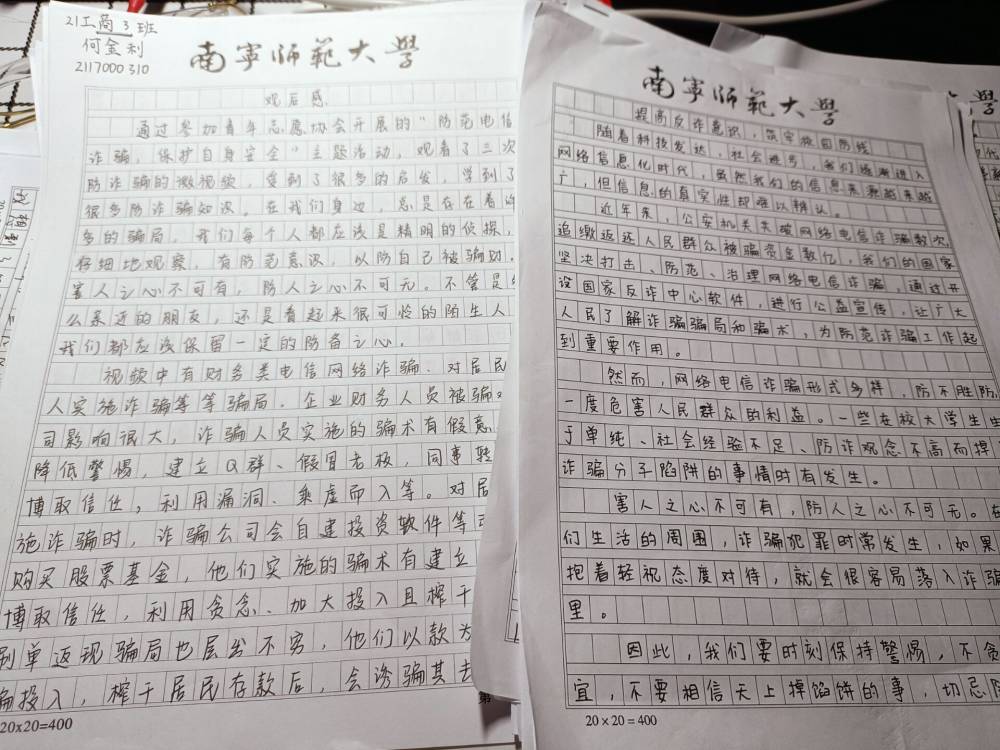 21工商3班
何金利
2117000310
南宁师范大学
观后感
通过参加青年志愿协会开展的“防范电信
诈骗，保护自身安全”主题活动，观看了三次
防诈骗的微视频，受到了很多的启发，学到了
很多防诈骗知识。在我们身边，总是存在着许
多的骗局，我们每个人都应该是精明的侦探，
仔细地观察，有防范意识，以防自己被骗财。
害人之心不可有，防人之心不可无。不管是
么亲近的朋友，还是看起来很可怜的陌生人
我们都应该保留一定的防备之心。
视频中有财务类电信网络诈骗、对居民
人实施诈骗等等骗局，企业财务人员被骗对
司影响很大，诈骗人员实施的骗术有假意、
降低警惕，建立Q群、假冒老板，同事转
博取信任，利用漏洞、乘虚而入等。对居
施诈骗时，诈骗公司会自建投资软件等
购买股票基金，他们实施的骗术有建立
博取信任，利用贪念、加大投入且榨干
刷单返现骗局也层出不穷，他们以款为
骗投入，榨干居民存款后，会诱骗其去
20×20=400
第
南宁师范大学
提高反诈意识，筑牢校园防线
随着科技发达，社会进步，我们逐渐进入
网络信息化时代，虽然我们的信息来源越来越
广，但信息的真实性却难以辨认。
近年来，公安机关共破网络电信诈骗数次，
追缴返还人民群众被骗资金数亿，我们的国家
坚决打击、防范、治理网络电信诈骗，通过开
设国家反诈中心软件，进行公益宣传，让广大
人民了解诈骗骗局和骗术，为防范诈骗工作起
到重要作用。
然而，网络电信诈骗形式多样，防不胜防，
一度危害人民群众的利益。一些在校大学生由
于单纯、社会经验不足、防诈观念不高而掉
诈骗分子陷阱的事情时有发生。
害人之心不可有，防人之心不可无。在
们生活的周围，诈骗犯罪时常发生，如果
抱着轻视态度对待，就会很容易落入诈骗
里。
因此，我们要时刻保持警惕，不贪
宜，不要相信天上掉馅饼的事，切忌
20×20=400